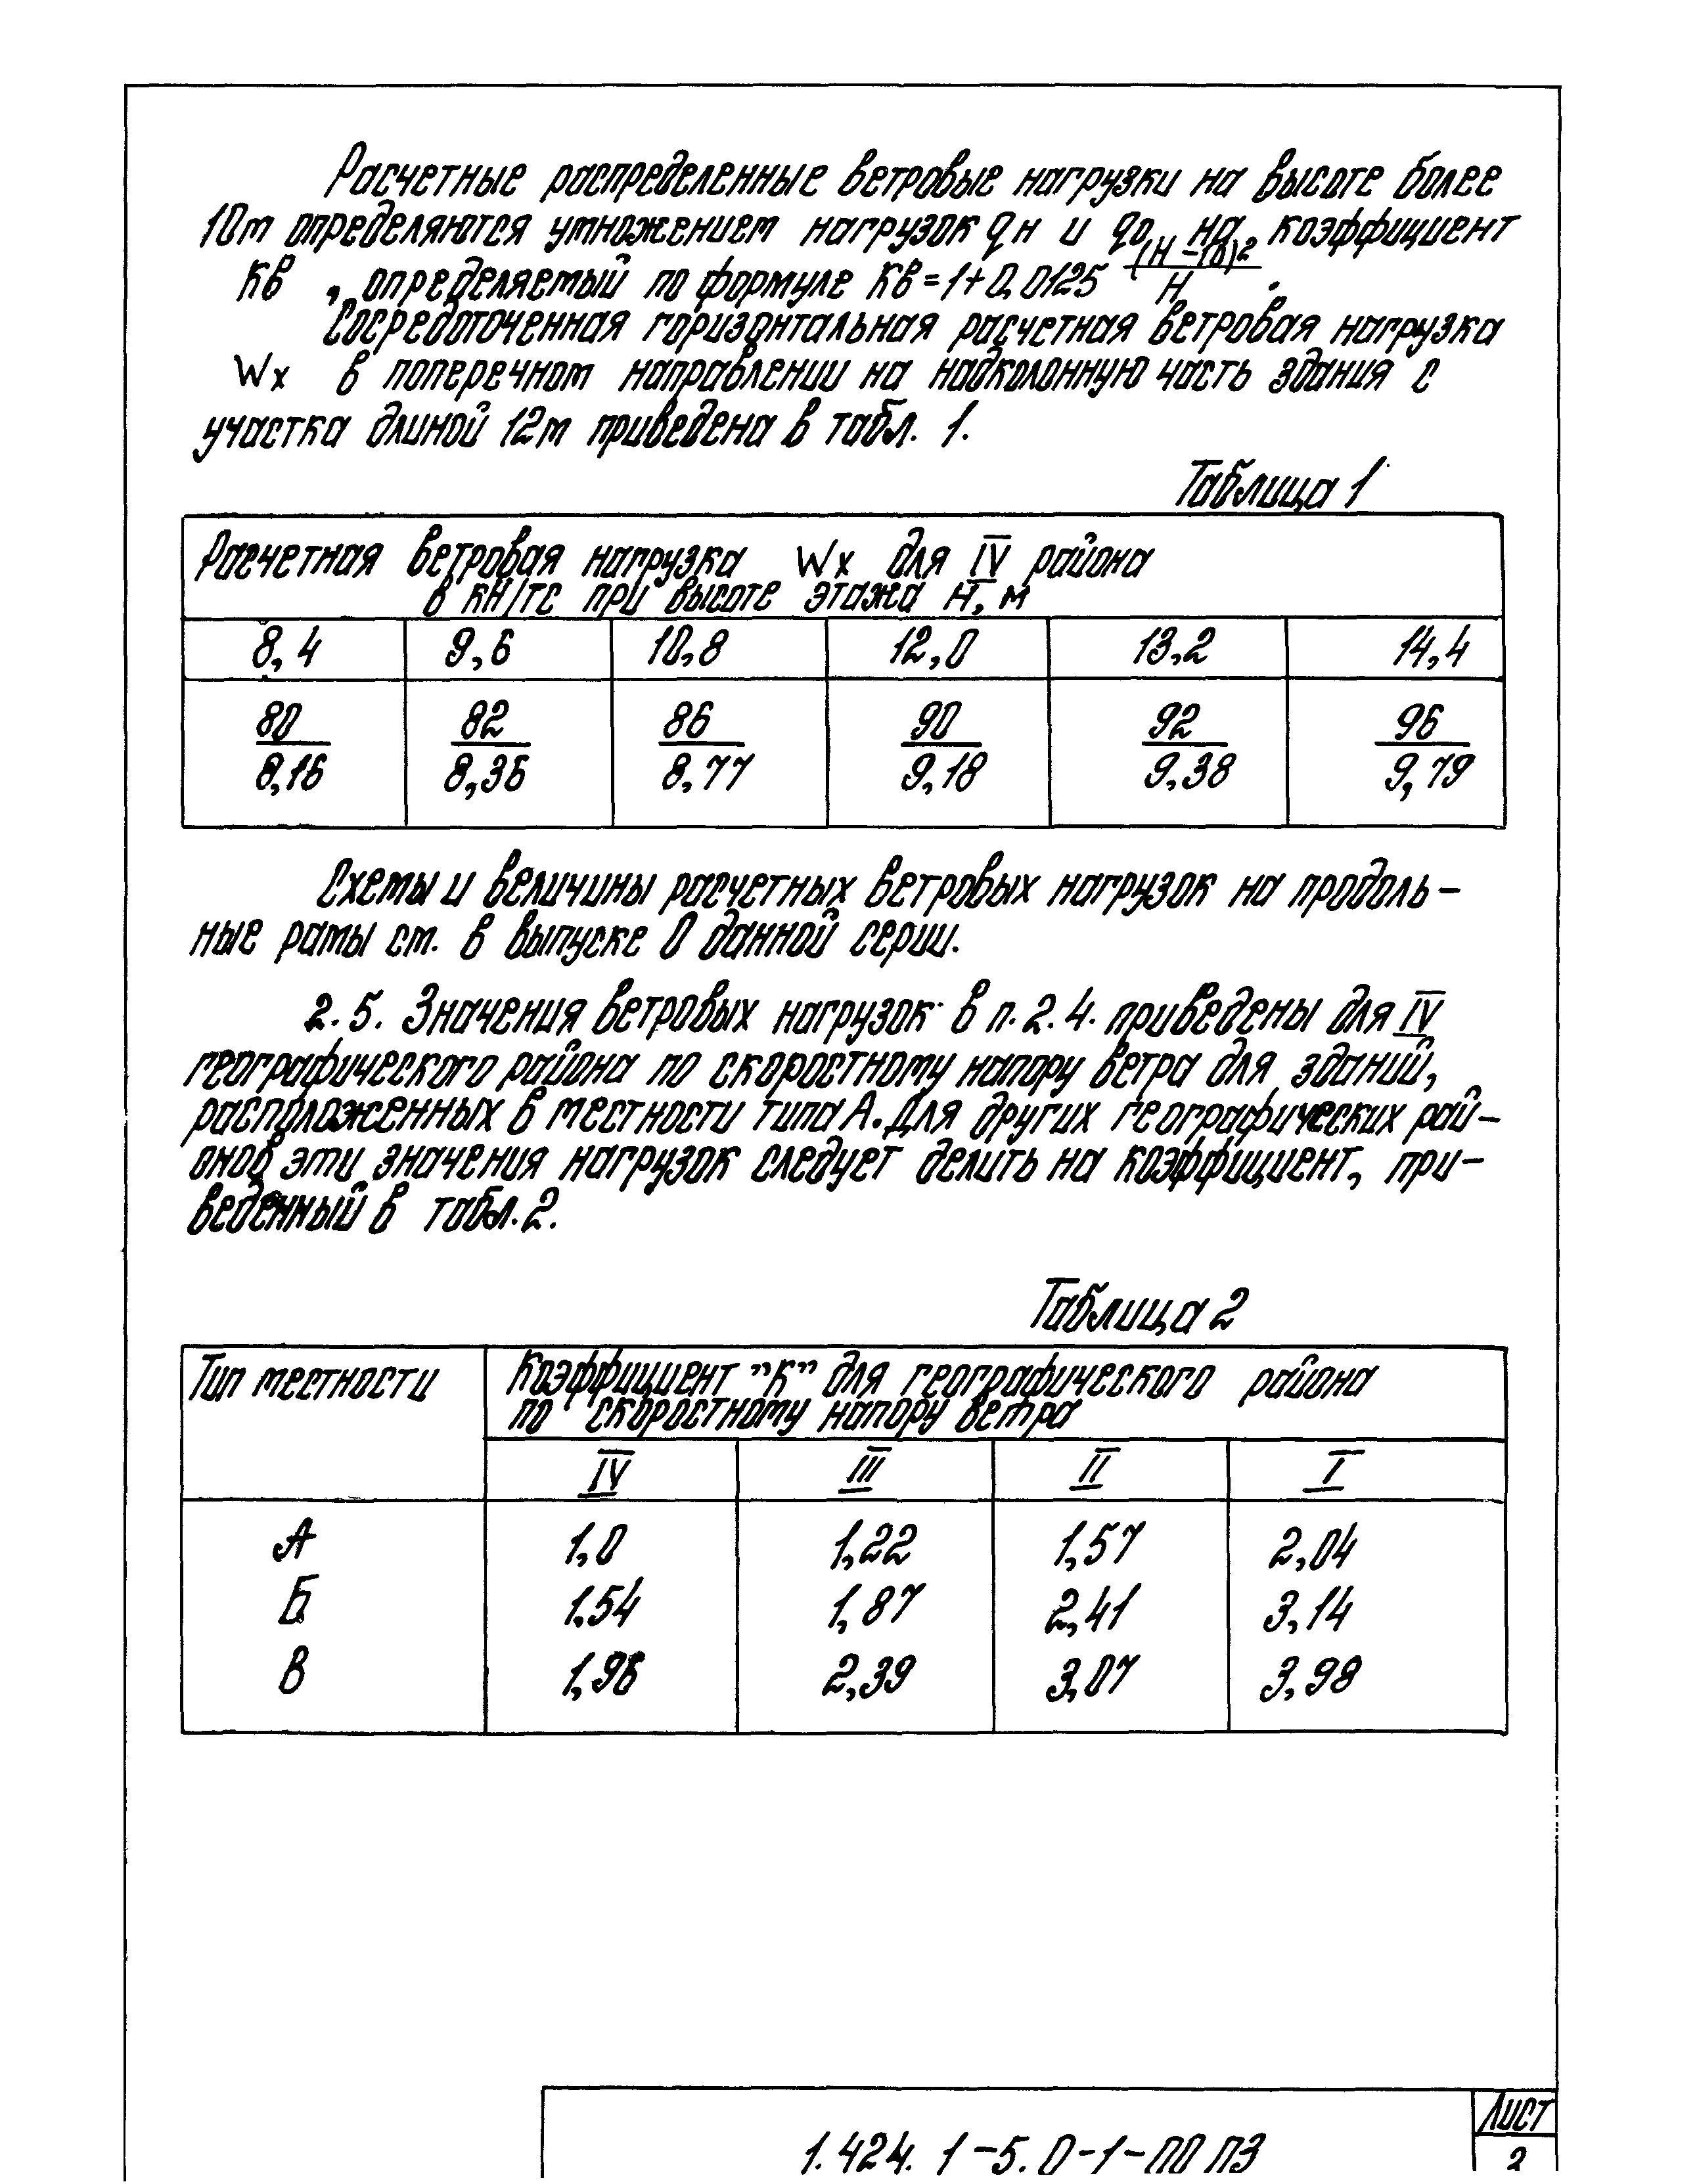 Расчетные распределенные ветровые нагрузки на высоте более
10м определяются умножением нагрузок qн и qо на коэффициент
Kв , определяемый по формуле Kв=1+0,0125 (H-10)²/H .
Сосредоточенная горизонтальная расчетная ветровая нагрузка
Wx в поперечном направлении на надколонную часть здания с
участка длиной 12м приведена в табл. 1.
Таблица 1
Расчетная ветровая нагрузка Wx для IV района
в кН/тс при высоте этажа Н, м
8,4 9,6 10,8 12,0 13,2 14,4
80 82 86 90 92 96
8,16 8,36 8,77 9,18 9,38 9,79
Схемы и величины расчетных ветровых нагрузок на продоль-
ные рамы см. в выпуске 0 данной серии.
2.5. Значения ветровых нагрузок в п. 2.4. приведены для IV
географического района по скоростному напору ветра для зданий,
расположенных в местности типа А. Для других географических рай-
онов эти значения нагрузок следует делить на коэффициент, при-
веденный в табл. 2.
Таблица 2
Тип местности Коэффициент "К" для географического района
по скоростному напору ветра
IV III II I
А 1,0 1,22 1,57 2,04
Б 1.54 1,87 2,41 3,14
В 1,96 2,39 3,07 3,98
Лист
1.424.1-5.0-1-00 ПЗ 2